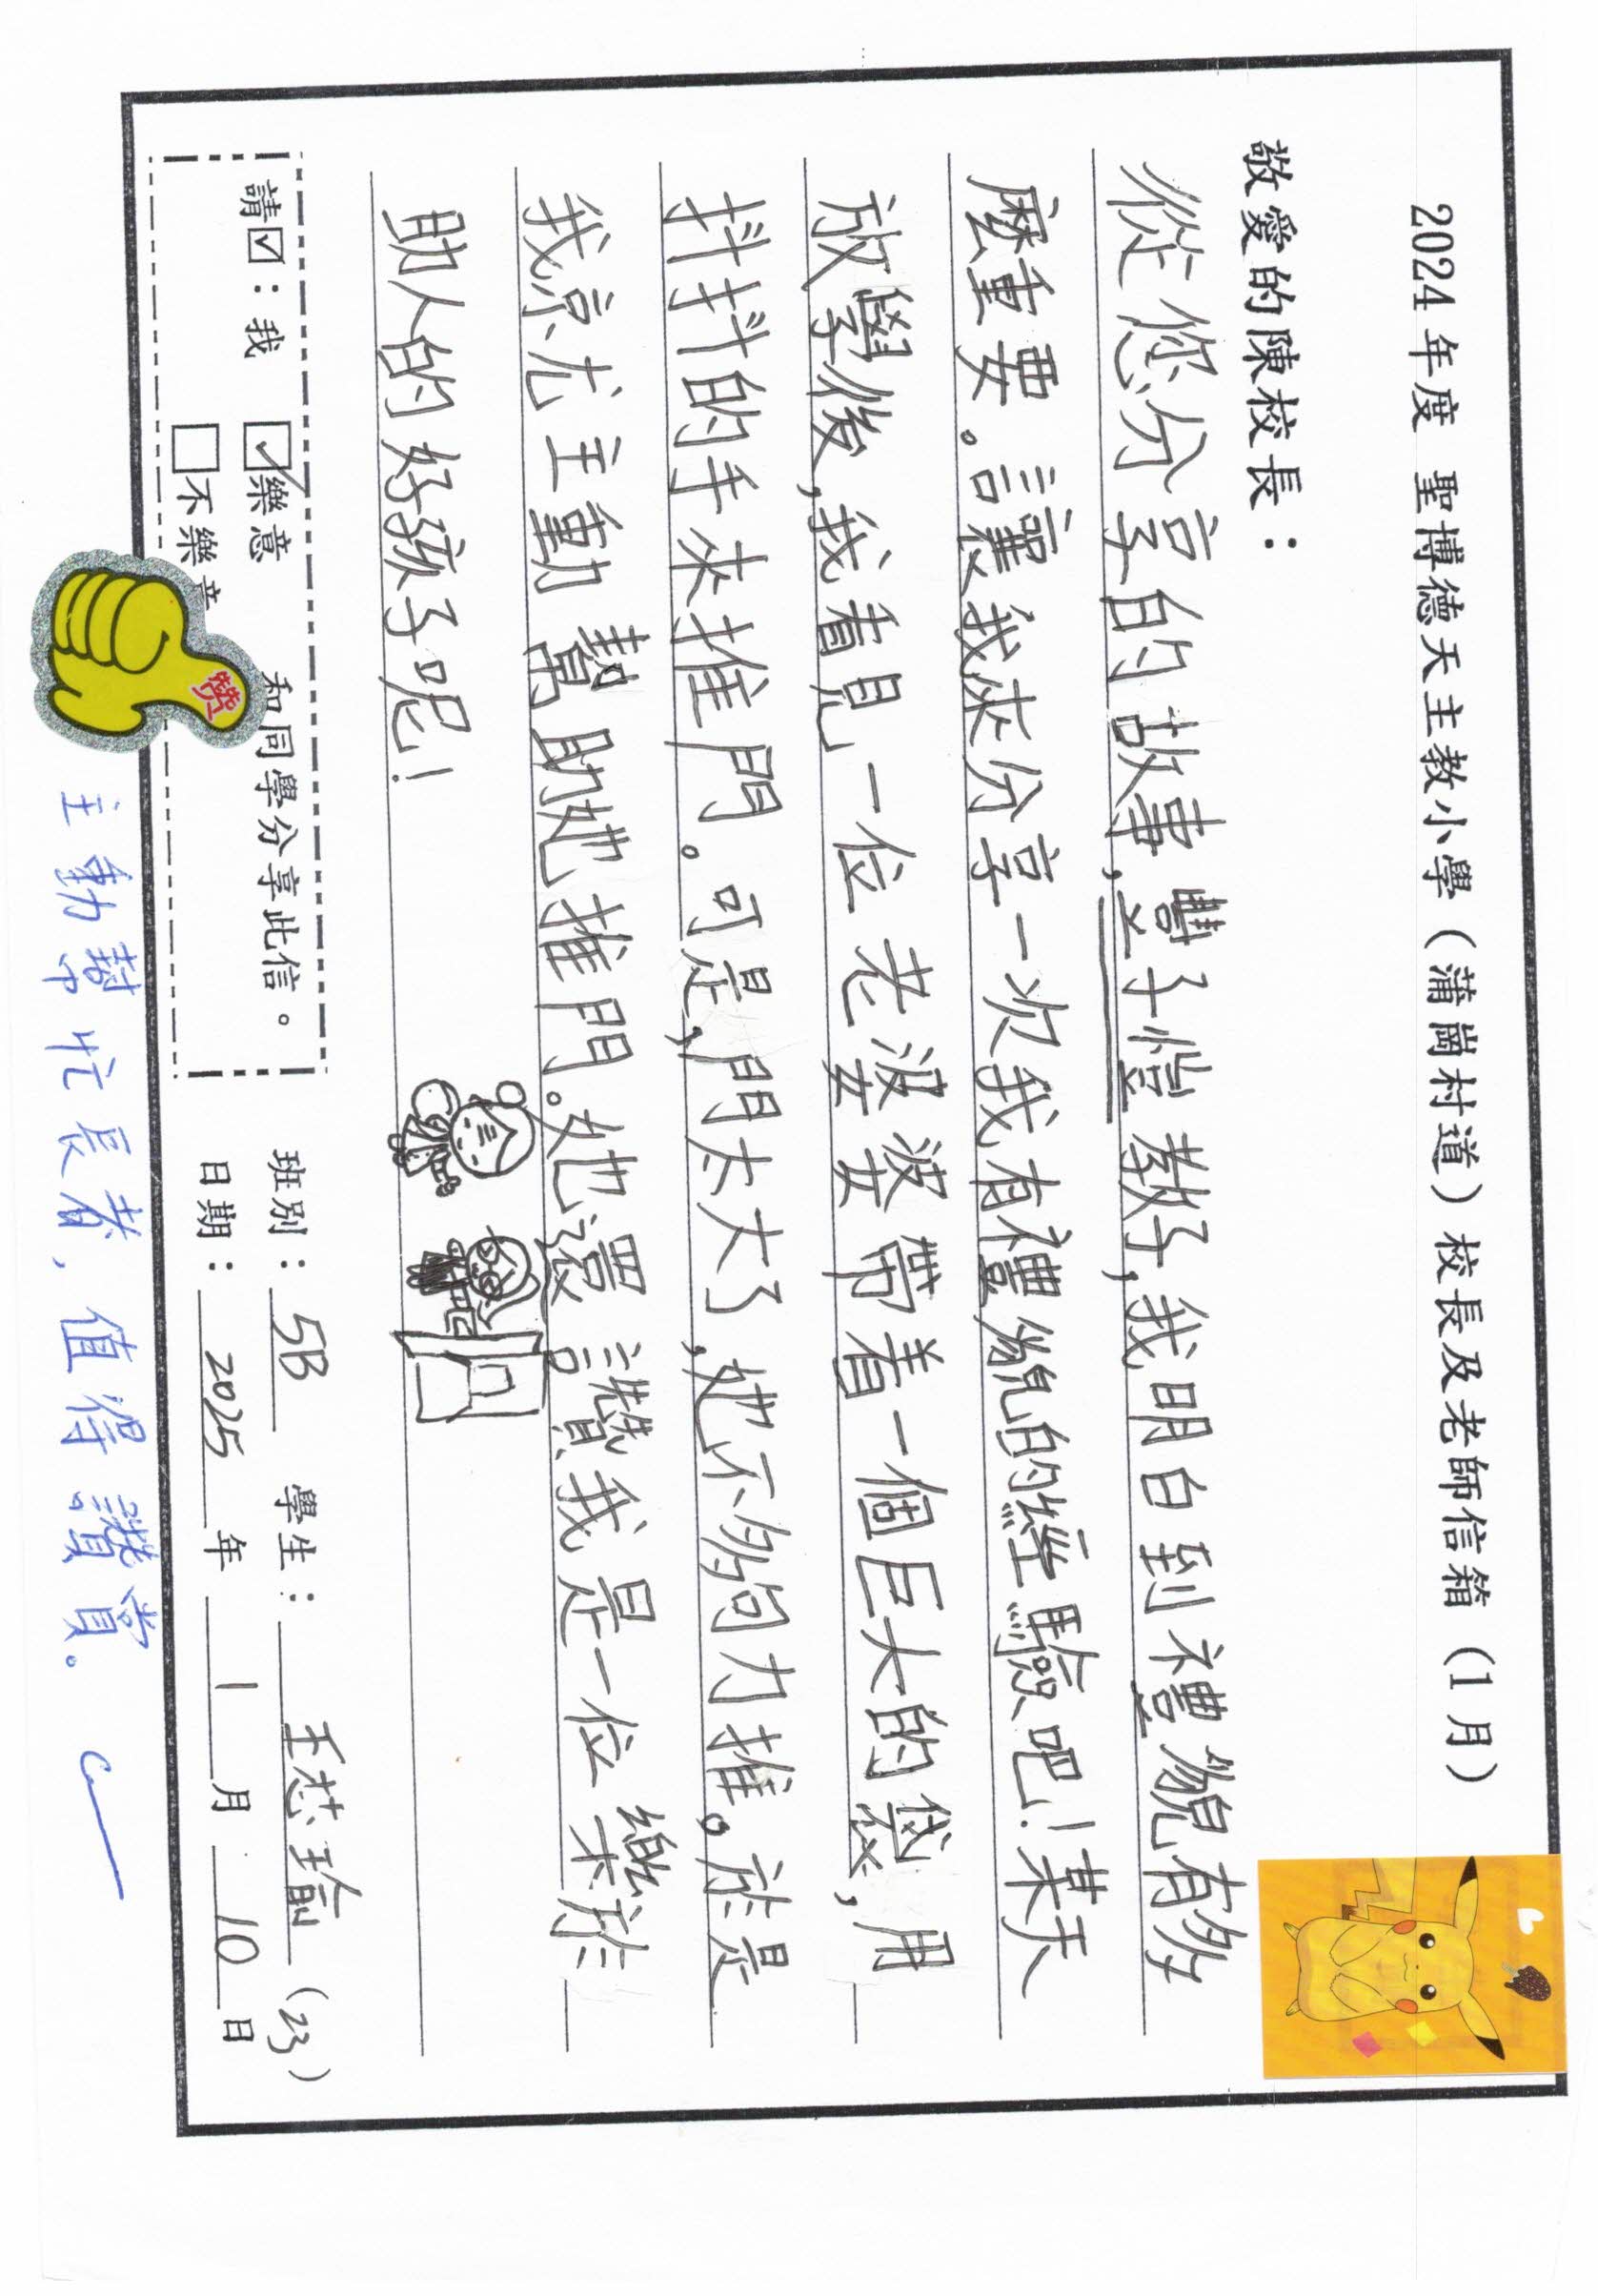 2024年度 聖博德天主教小學（蒲崗村道）校長及老師信箱（1月）
敬愛的陳校長：
從您分享的故事，豐子愷教子，我明白到禮貌有多
麼重要。讓我來分享一次我有禮貌的經驗吧！某天
放學後，我看見一位老婆婆帶着一個巨大的袋，用
抖抖的手來推門。可是，門太大了，她不夠力推。於是
我就主動幫助她推門。她還讚我是一位樂於
助人的好孩子呢！
請☑：我 ☑樂意 和同學分享此信。
□不樂意
班別：5B 學生：王慧瑜（23）
日期：2025年1月10日
赞
主動幫忙長者，值得讚賞。